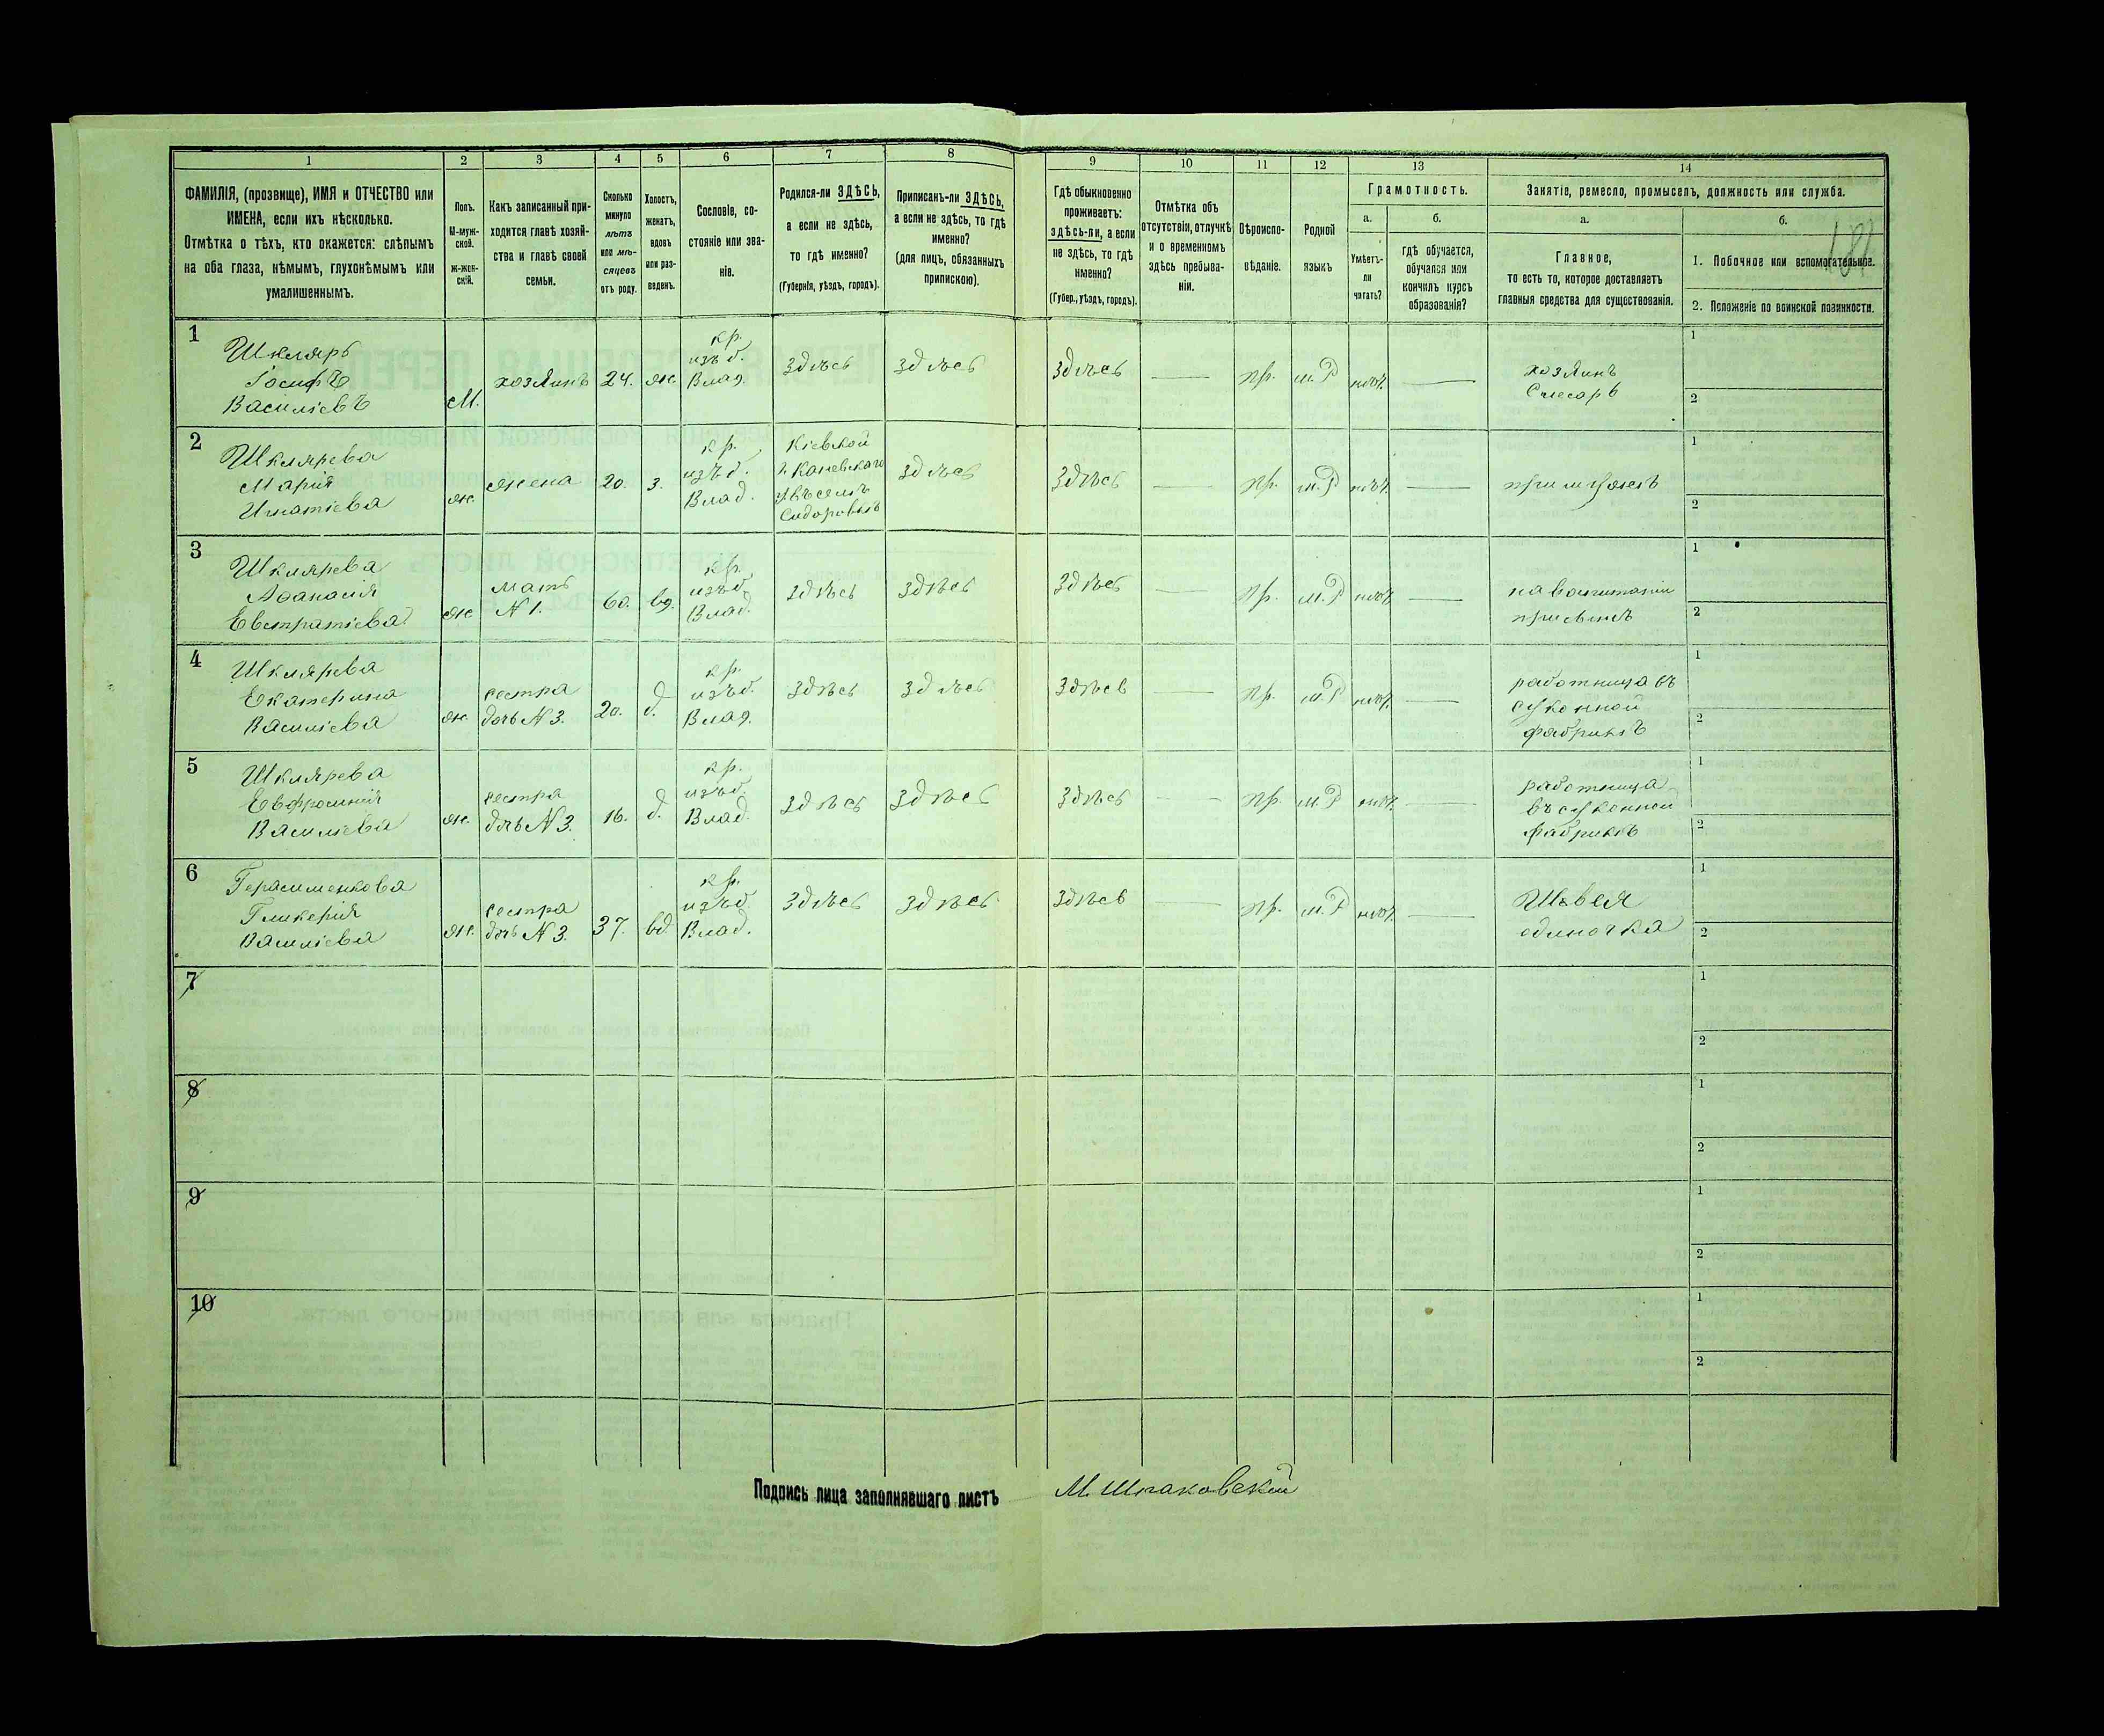 1 2 3 4 5 6 7 8 9 10 11 12 13 14
ФАМИЛІЯ, (прозвище), ИМЯ и ОТЧЕСТВО или
ИМЕНА, если ихъ нѣсколько.
Отмѣтка о тѣхъ, кто окажется: слѣпымъ
на оба глаза, нѣмымъ, глухонѣмымъ или
умалишеннымъ.
Полъ.
М-муж-
ской.
Ж-жен-
скій.
Какъ записанный при-
ходится главѣ хозяй-
ства и главѣ своей
семьи.
Сколько
минуло
лѣтъ
или мѣ-
сяцевъ
отъ роду.
Холостъ,
женатъ,
вдовъ
или раз-
веденъ.
Сословіе, со-
стояніе или зва-
ніе.
Родился-ли ЗДѢСЬ,
а если не здѣсь,
то гдѣ именно?
(Губернія, уѣздъ, городъ).
Приписанъ-ли ЗДѢСЬ,
а если не здѣсь, то гдѣ
именно?
(для лицъ, обязанныхъ
припискою).
Гдѣ обыкновенно
проживаетъ:
здѣсь-ли, а если
не здѣсь, то гдѣ
именно?
(Губер., уѣздъ, городъ).
Отмѣтка объ
отсутствіи, отлучкѣ
и о временномъ
здѣсь пребыва-
ніи.
Вѣроиспо-
вѣданіе.
Родной
языкъ
Грамотность.
а.
Умѣетъ-
ли
читать?
б.
гдѣ обучается,
обучался или
кончилъ курсъ
образованія?
Занятіе, ремесло, промыселъ, должность или служба.
а.
Главное,
то есть то, которое доставляетъ
главныя средства для существованія.
б.
1. Побочное или вспомогательное.
2. Положеніе по воинской повинности.
1
Шкляръ
Іосифъ
Василіевъ
М.
хозяинъ
24.
ж.
кр.
изъ б.
Влад.
Здѣсь
Здѣсь
Здѣсь
пр.
м.Р
нѣт.
хозяинъ
Слесарь
1
2
2
Шклярева
Марія
Игнатіева
ж.
жена
20.
з.
кр.
изъ б.
Влад.
Кіевской
г. Каневскаго
Здѣсь
Здѣсь
пр.
м.Р
нѣт.
при мужѣ
1
2
3
Шклярева
Афанасія
Евстратіева
ж.
мать
N 1.
60.
вд.
кр.
изъ б.
Влад.
Здѣсь
Здѣсь
Здѣсь
пр.
м.Р
нѣт.
при сынѣ
1
2
4
Шклярева
Екатерина
Василіева
ж.
сестра
дочь N 3.
20.
д.
кр.
изъ б.
Влад.
Здѣсь
Здѣсь
Здѣсь
пр.
м.Р
нѣт.
работница въ
суконной
фабрикѣ
1
2
5
Шклярева
Евфросинія
Василіева
ж.
сестра
дочь N 3.
16.
д.
кр.
изъ б.
Влад.
Здѣсь
Здѣсь
Здѣсь
пр.
м.Р
нѣт.
работница
въ суконной
фабрикѣ
1
2
6
Герасименкова
Гликерія
Василіева
ж.
сестра
дочь N 3.
37.
вд.
кр.
изъ б.
Влад.
Здѣсь
Здѣсь
Здѣсь
пр.
м.Р
нѣт.
Швея
одиночка
1
2
7
1
2
8
1
2
9
1
2
10
1
2
Подпись лица заполнявшаго листъ